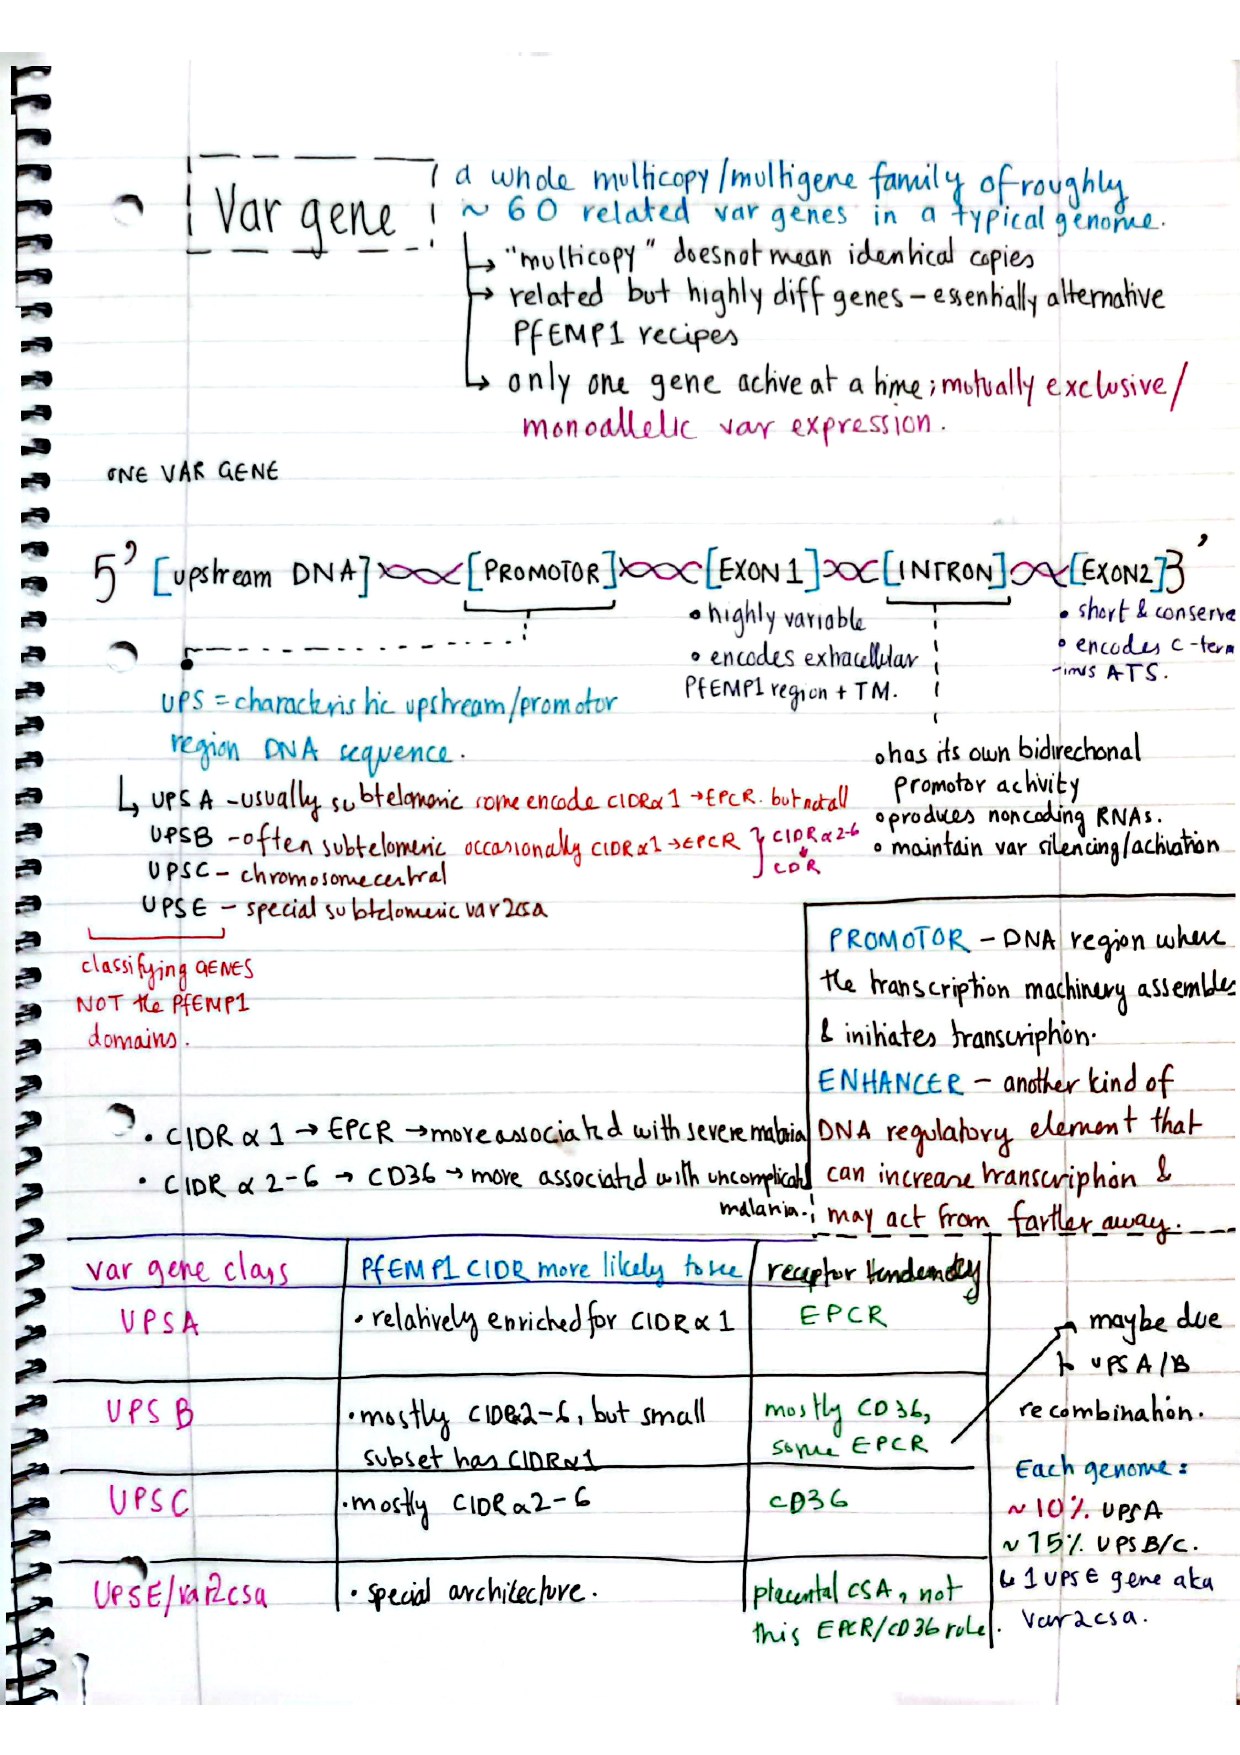 Var gene
a whole multicopy/multigene family of roughly
~ 60 related var genes in a typical genome.
↳ "multicopy" doesnot mean identical copies
↳ related but highly diff genes – essentially alternative
PfEMP1 recipes
↳ only one gene active at a time; mutually exclusive/
monoallelic var expression.
ONE VAR GENE
5' [upstream DNA] [PROMOTOR] [EXON 1] [INTRON] [EXON2] 3'
• highly variable
• encodes extracellular
PfEMP1 region + TM.
• short & conserve
• encodes C-term
-inus ATS.
UPS = characteristic upstream/promotor
region DNA sequence.
• has its own bidirectional
promotor activity
• produces noncoding RNAs.
• maintain var silencing/activation
↳ UPS A – usually subtelomeric some encode CIDRα1 → EPCR. but not all
UPSB – often subtelomeric occasionally CIDRα1 → EPCR } CIDRα2-6
UPSC – chromosome central
CDR
UPSE – special subtelomeric var2csa
classifying GENES
NOT the PfEMP1
domains.
PROMOTOR – DNA region where
the transcription machinery assembles
& initiates transcription.
ENHANCER – another kind of
DNA regulatory element that
can increase transcription &
may act from farther away.
• CIDRα1 → EPCR → more associated with severe malaria
• CIDRα2-6 → CD36 → more associated with uncomplicated
malaria.
var gene class | PfEMP1 CIDR more likely to see | receptor tendency
UPSA | • relatively enriched for CIDRα1 | EPCR
UPSB | • mostly CIDRα2-6, but small | mostly CD36,
subset has CIDRα1 | some EPCR
UPSC | • mostly CIDRα2-6 | CD36
UPSE/var2csa | • special architecture. | placental CSA, not
this EPCR/CD36 role.
maybe due
to UPS A/B
recombination.
Each genome:
~10% UPSA
~75% UPSB/C.
↳ 1 UPSE gene aka
var2csa.